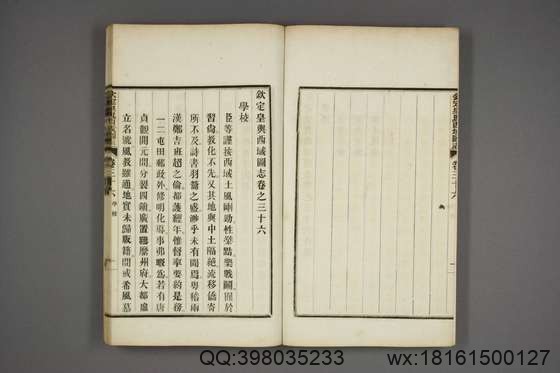 欽定皇輿西域圖志卷之三十六
學校
臣等謹按西域土風剛勁性獷黠樂戰鬭囿於
習尙敎化不先又其地與中土隔絶流移僑寄
所不及詩書羽籥之盛渺乎未有聞焉粤稽兩
漢鄭吉班超之倫都護經年惟督率要約是務
一二屯田郵政外修明化導事弗暇焉若有唐
貞觀開元間分裂四鎮廣置羈縻州府大都虛
立名號風敎雖通地實未歸版籍間或希風慕
卷三十六
學校
一
卷三十六
QQ:398035233
wx:18161500127